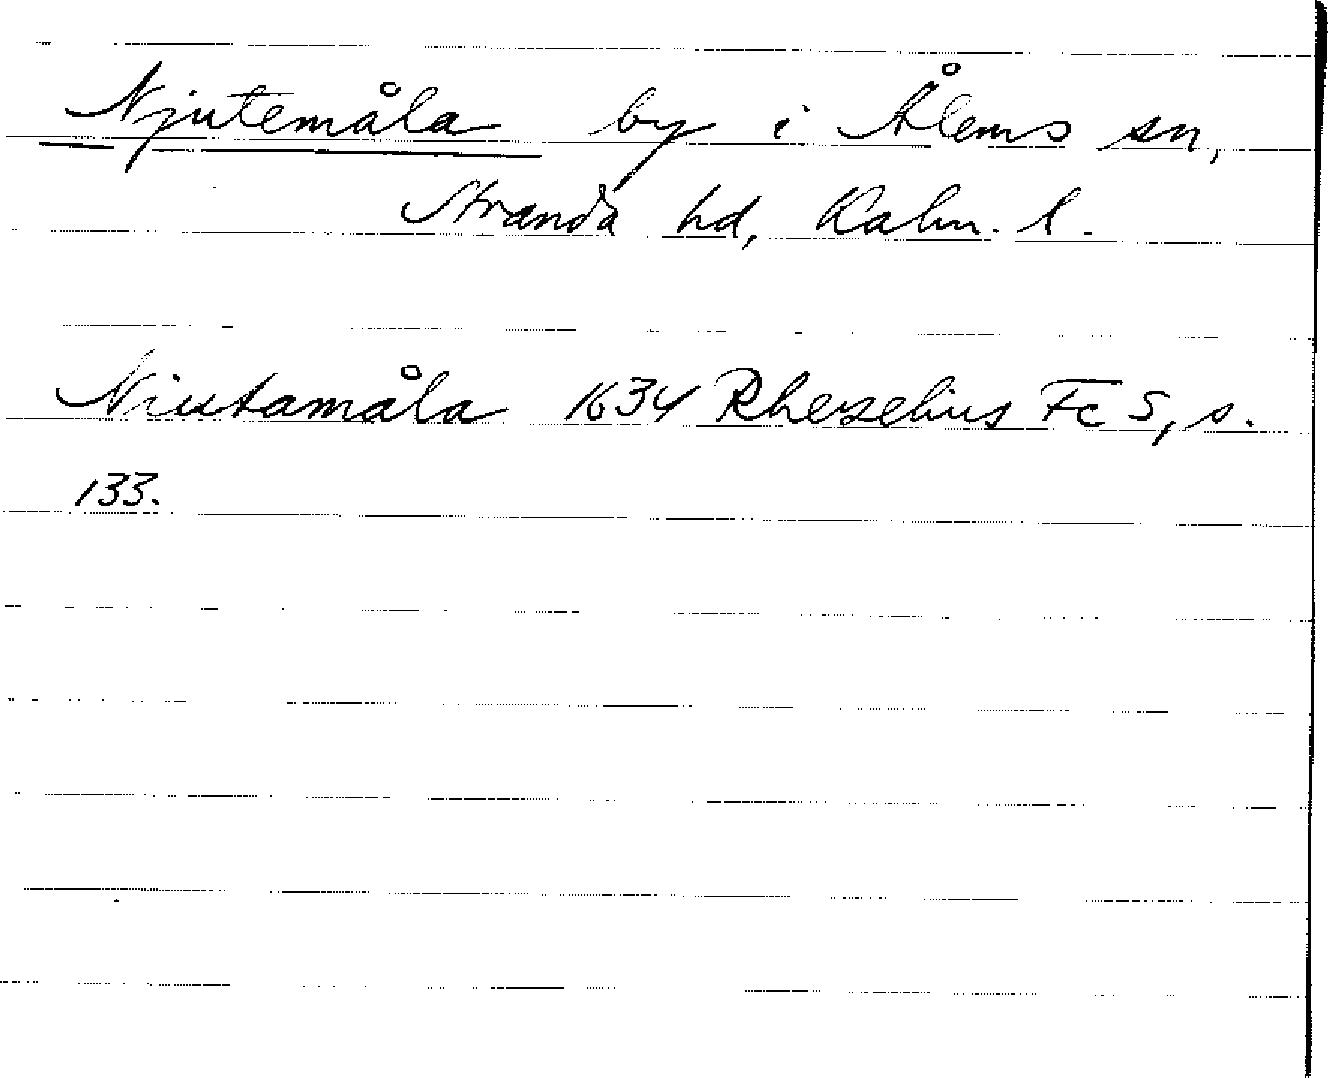 Njutemåla by i Ålems sn,
Stranda hd, Kalm. l.
Niutamåla 1634 Rhezelius Fc 5, s.
133.